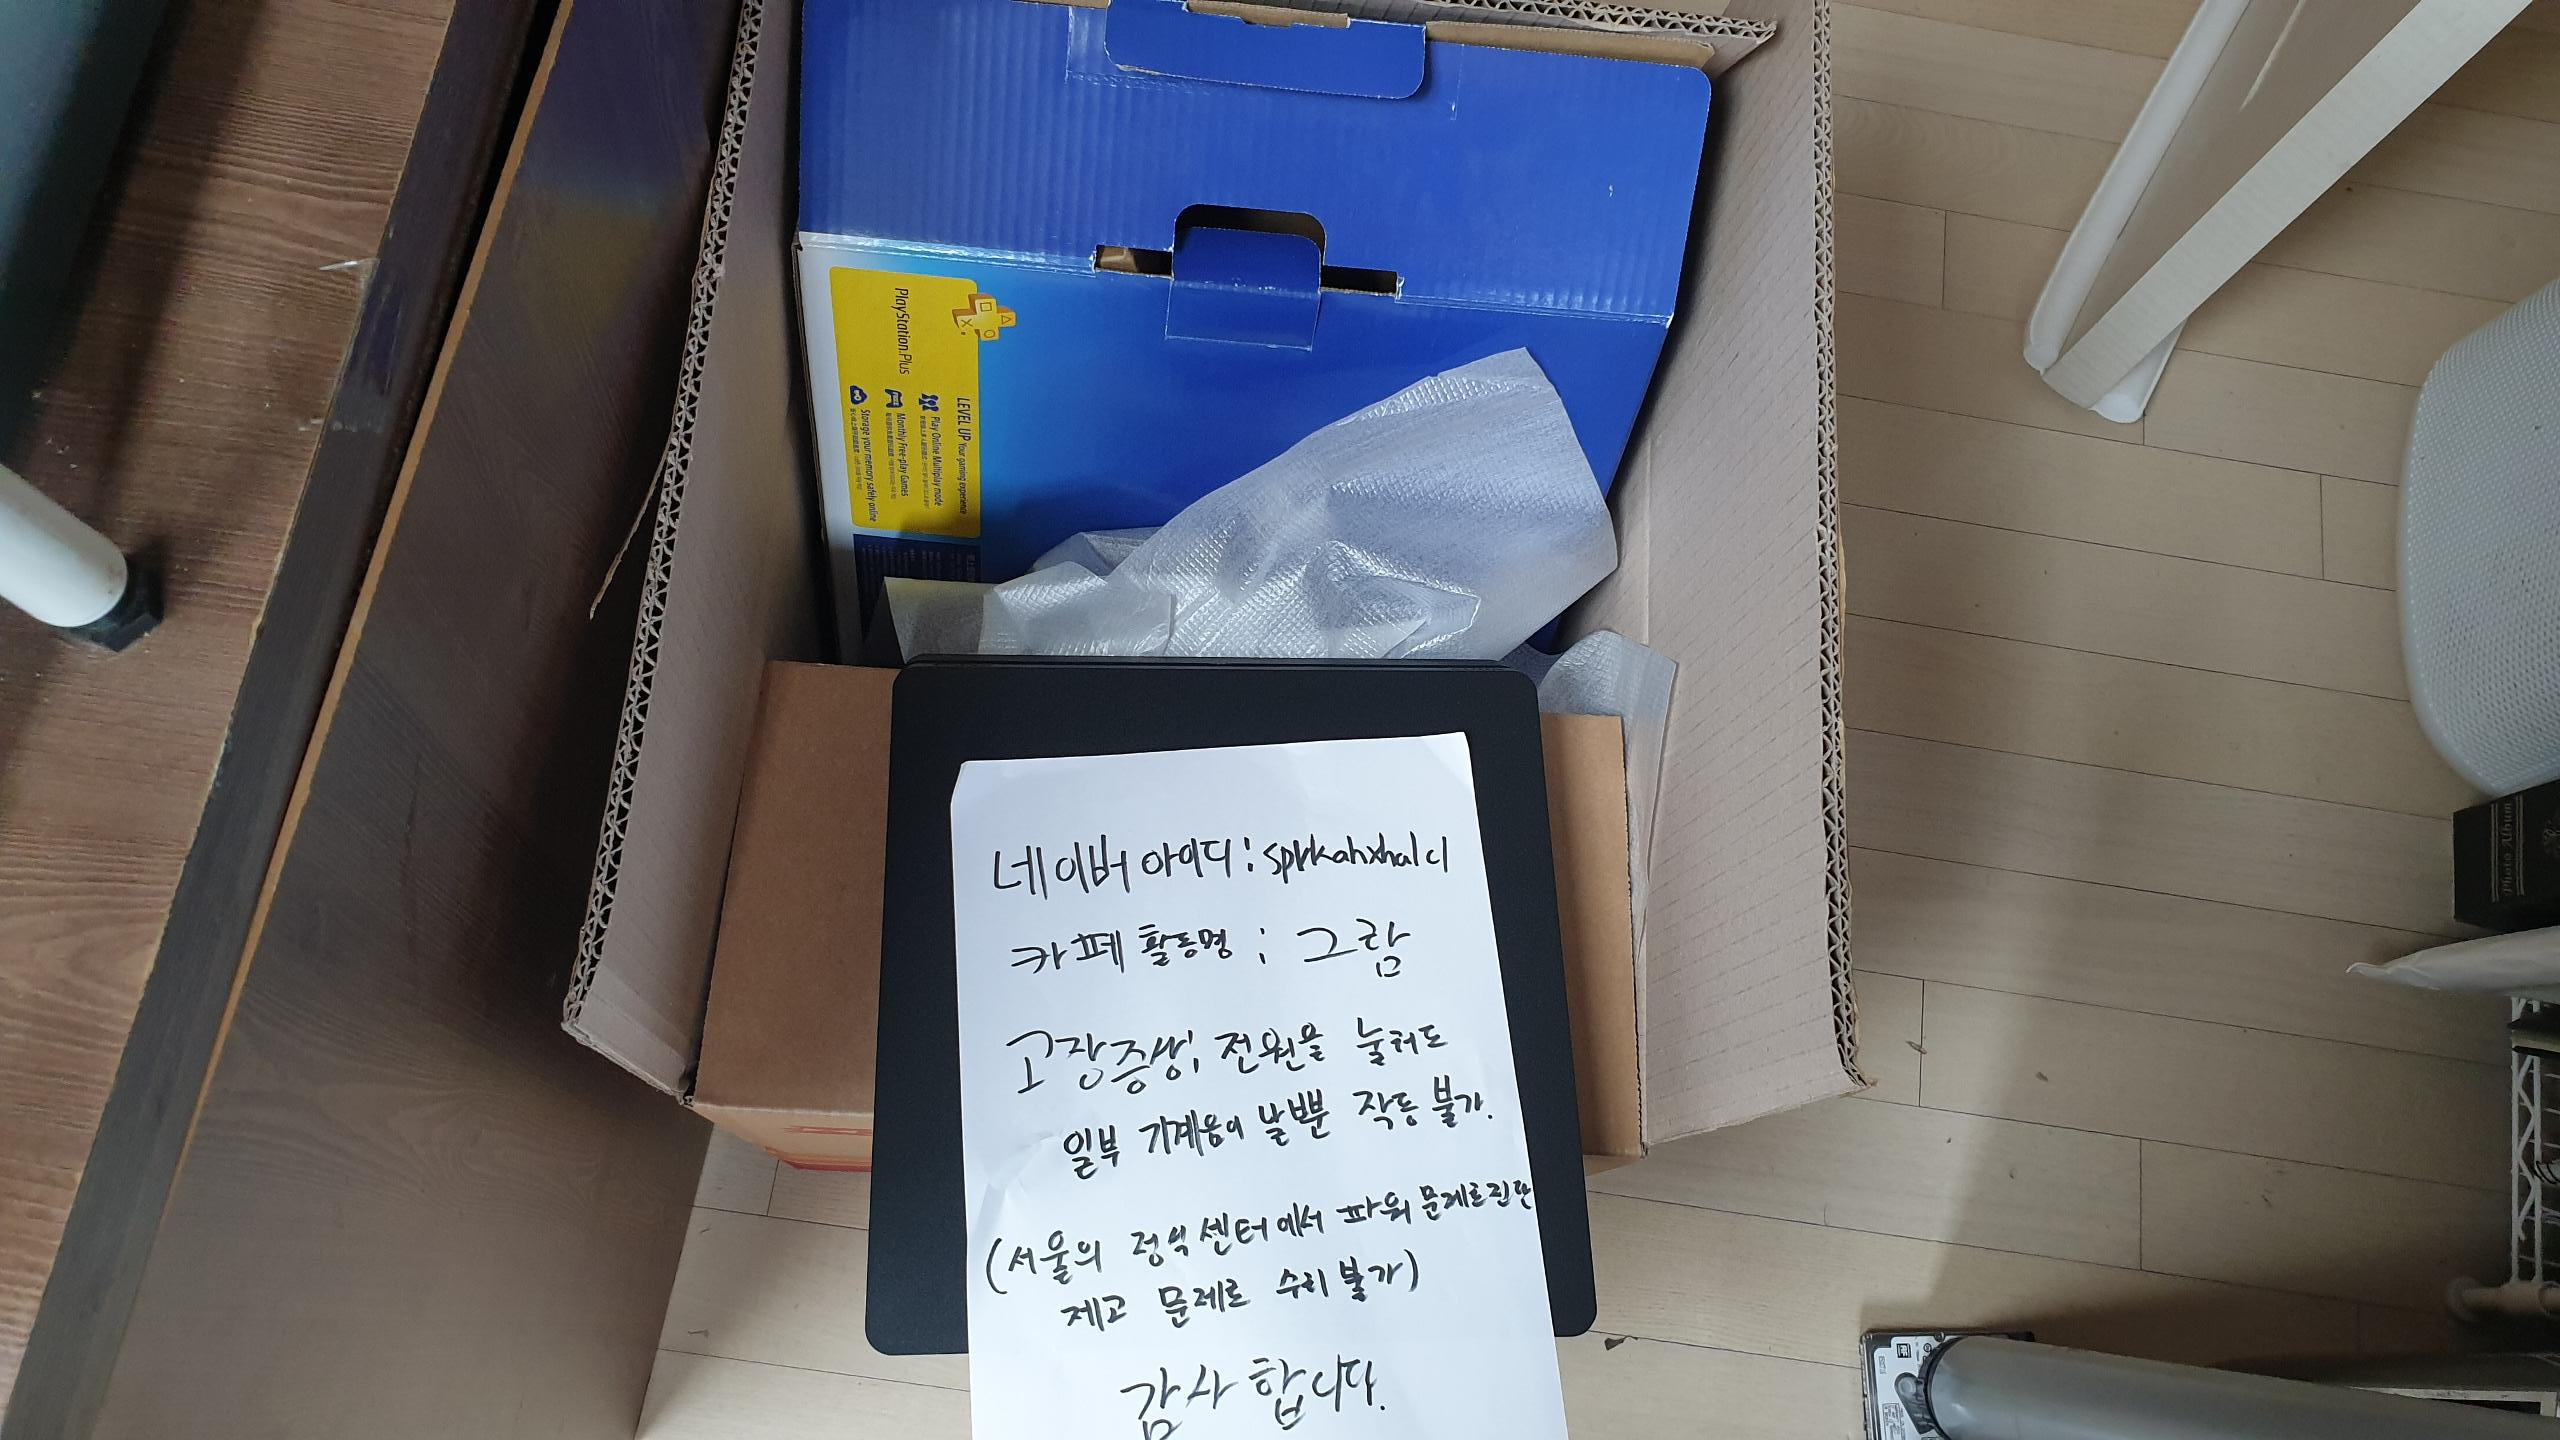 PlayStation.Plus
LEVEL UP Your gaming experience
Play Online Multiplay mode
Monthly Free-play Games
Storage your memory safely online
네이버 아이디 :
카페 활동명 : 그람
고장증상; 전원을 눌러도
일부 기계음이 날뿐 작동 불가.
(서울의 정식 센터에서 파워 문제로 진단
제고 문제로 수리 불가)
감사합니다.
Photo Album